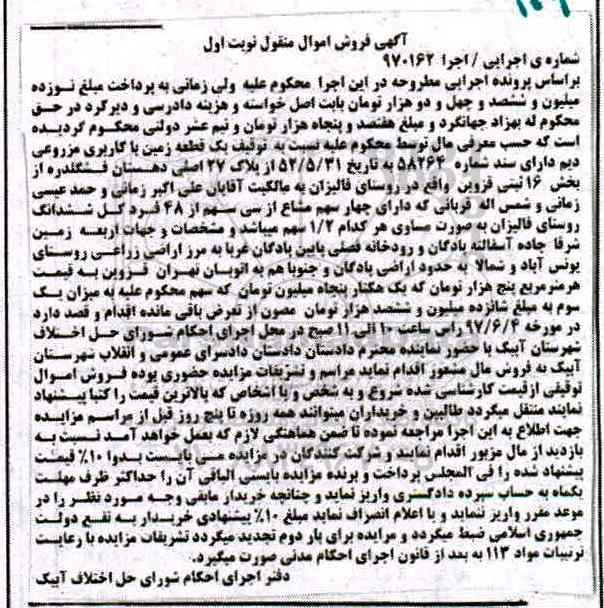 آگهی فروش اموال منقول نوبت اول
شماره ی اجرایی / اجرا ۹۷۰۱۶۲
براساس پرونده اجرایی مطروحه در این اجرا محکوم علیه ولی زمانی به پرداخت مبلغ نوزده
میلیون و ششصد و چهل و دو هزار تومان بابت اصل خواسته و هزینه دادرسی و دیرکرد در حق
محکوم له بهزاد جهانگرد و مبلغ هفتصد و پنجاه هزار تومان و نیم عشر دولتی محکوم گردیده
است که حسب معرفی مال توسط محکوم علیه نسبت به توقیف یک قطعه زمین با کاربری مزروعی
دیم دارای سند شماره ۵۸۲۶۴ به تاریخ ۵۲/۵/۳۱ از پلاک ۲۷ اصلی دهستان قشگلدره از
بخش ۱۶ ثبتی قزوین واقع در روستای فالیزان به مالکیت آقایان علی اکبر زمانی و حمد عیسی
زمانی و شمس اله قربانی که دارای چهار سهم مشاع از سی سهم از ۴۸ فرد کل ششدانگ
روستای فالیزان به صورت مساوی هر کدام ۱/۲ سهم میباشد و مشخصات و جهات اربعه زمین
شرقا جاده آسفالته پادگان و رودخانه فصلی پایین پادگان غربا به مرز اراضی زراعی روستای
یونس آباد و شمالا به حدود اراضی پادگان و جنوبا هم به اتوبان تهران قزوین به قیمت
هرمترمربع پنج هزار تومان که یک هکتار پنجاه میلیون تومان که سهم محکوم علیه به میزان یک
سوم به مبلغ شانزده میلیون و ششصد هزار تومان مصون از تعرض باقی مانده اقدام و قصد دارد
در مورخه ۹۷/۶/۴ راس ساعت ۱۰ الی ۱۱ صبح در محل اجرای احکام شورای حل اختلاف
شهرستان آبیک با حضور نماینده محترم دادستان دادستان دادسرای عمومی و انقلاب شهرستان
آبیک به فروش مال مشعور اقدام نماید مراسم و تشریفات مزایده حضوری بوده فروش اموال
توقیفی ازقیمت کارشناسی شده شروع و به شخص و یا اشخاص که بالاترین قیمت را کتبا پیشنهاد
نمایند منتقل میگردد طالبین و خریداران میتوانند همه روزه تا پنج روز قبل از مراسم مزایده
جهت اطلاع به این اجرا مراجعه نموده تا ضمن هماهنگی لازم که بعمل خواهد آمد نسبت به
بازدید از مال مزبور اقدام نمایند و شرکت کنندگان در مزایده می بایست بدوا ۱۰% قیمت
پیشنهاد شده را فی المجلس پرداخت و برنده مزایده بایستی الباقی آن را حداکثر ظرف مهلت
یکماه به حساب سپرده دادگستری واریز نماید و چنانچه خریدار مابقی وجه مورد نظر را در
موعد مقرر واریز ننماید و یا اعلام انصراف نماید مبلغ ۱۰% پیشنهادی خریدار به نفع دولت
جمهوری اسلامی ضبط میگردد و مزایده برای بار دوم تجدید میگردد تشریفات مزایده با رعایت
ترتیبات مواد ۱۱۳ به بعد از قانون اجرای احکام مدنی صورت میگیرد.
دفتر اجرای احکام شورای حل اختلاف آبیک